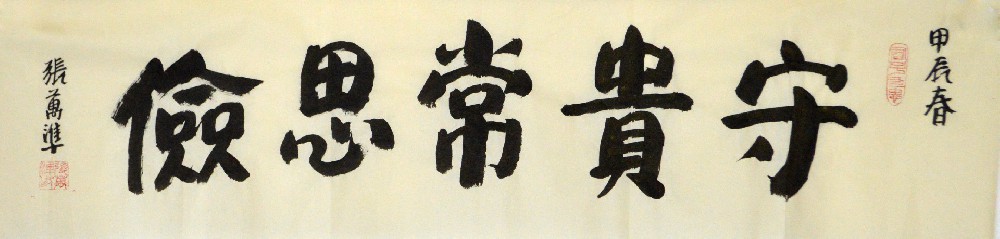 甲辰春
守貴常思儉
張萬準